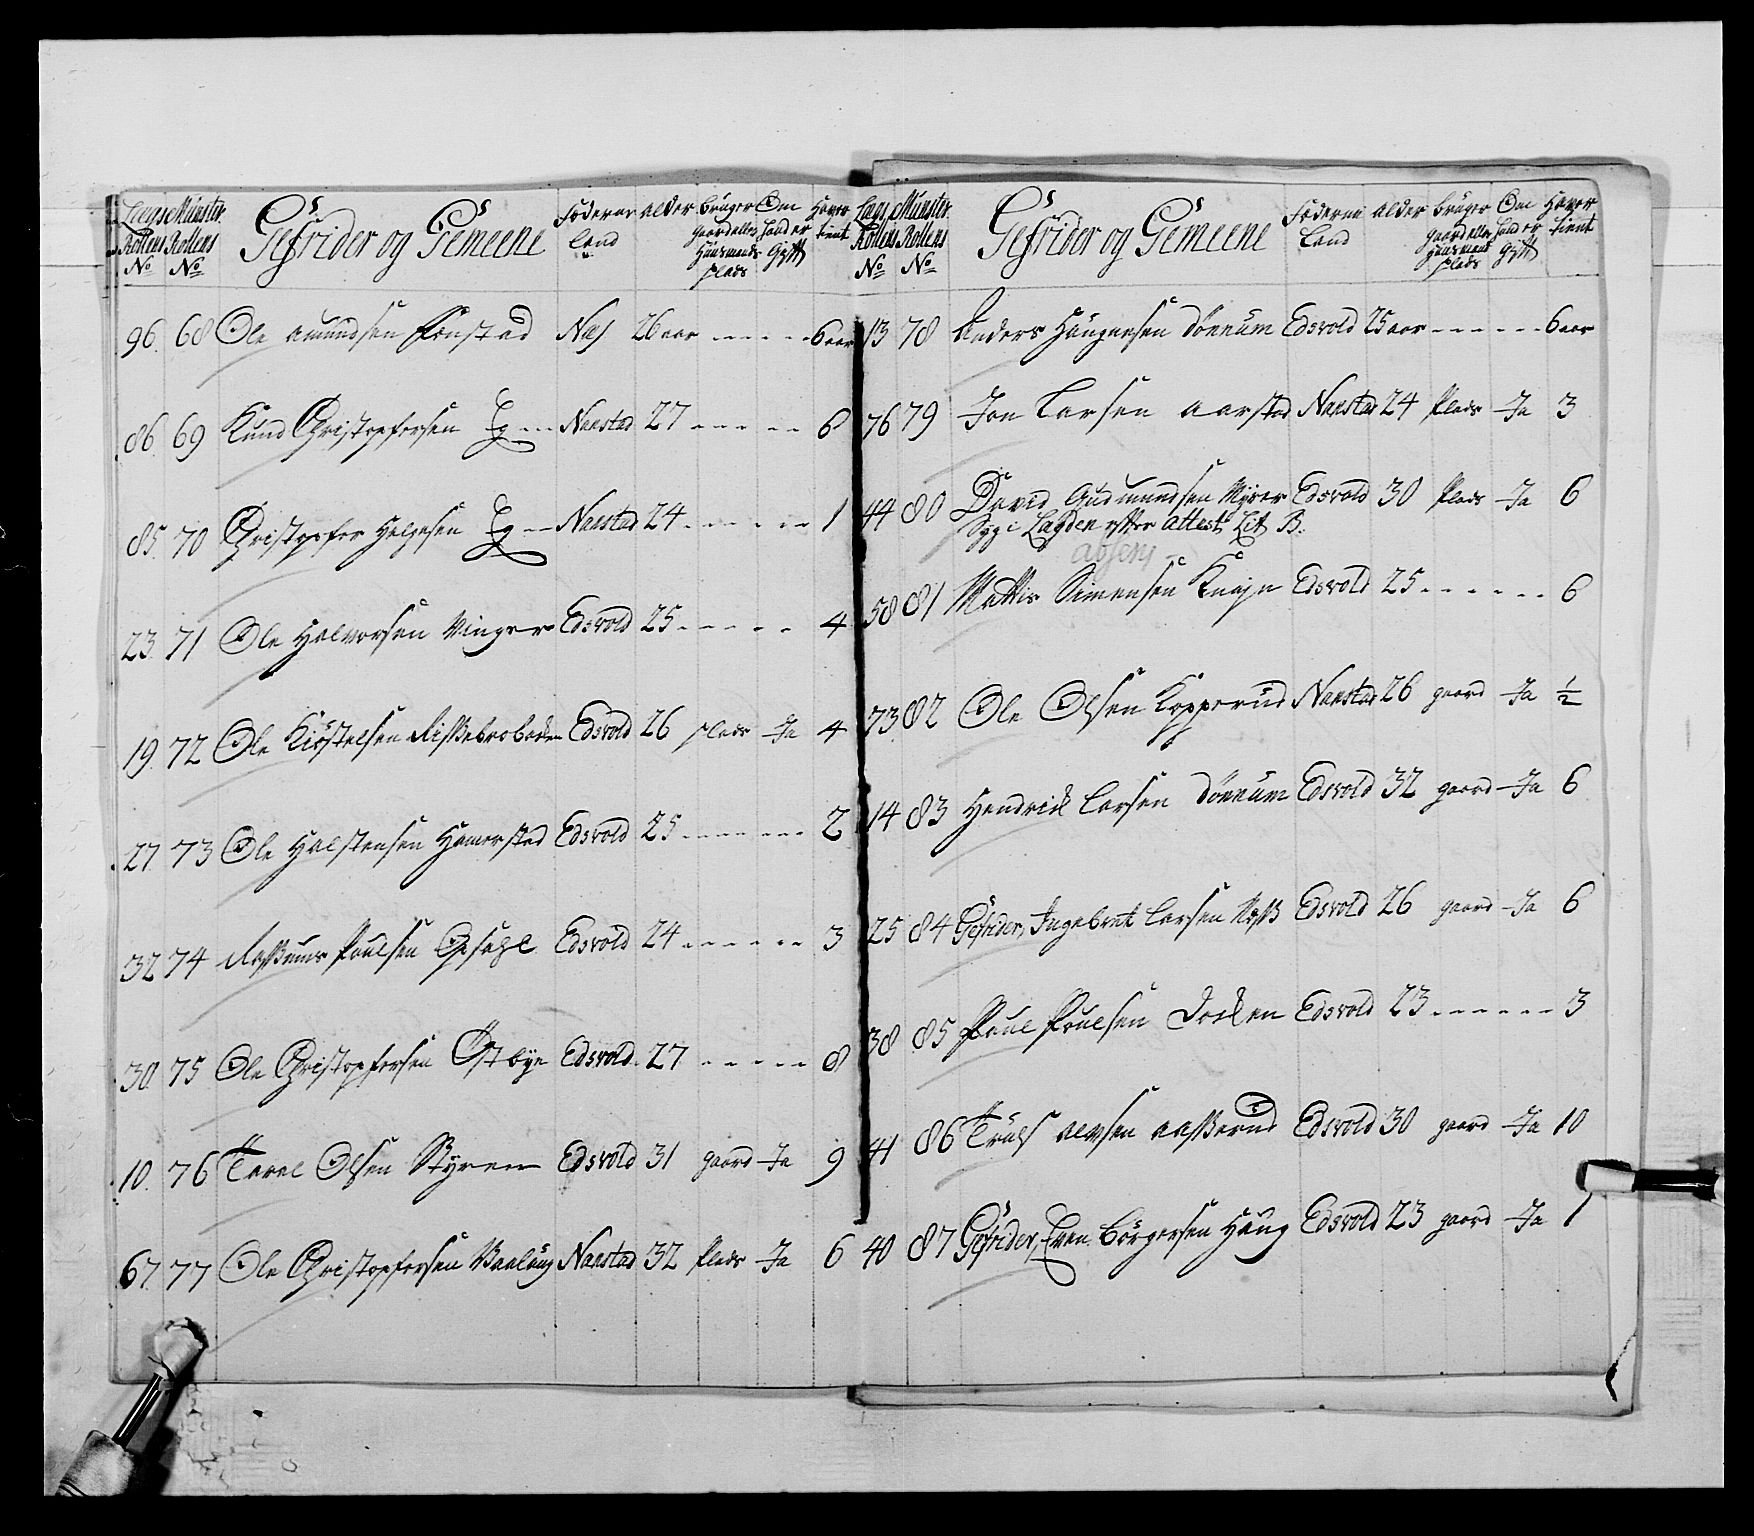 Lægs Rollens No | Mönster Rollens No | Gefrider og Gemeene | Föderne land | Alder | Bruger gaard eller Huusmands plads | Om hand er Gyft | Haver tient
96. 68 Ole Amundsen Fonstad Næs 26 aar - - - - - 6 aar
86. 69 Knud Christophersen Eg - - Nanstad 27 - - - - - 6
85. 70 Christopher Helgesen Eg - - Nanstad 24 - - - - - - 1
23. 71 Ole Halvorsen Vinger Edsvold 25 - - - - - 4
19. 72 Ole Kiöstelsen Edsvold 26 plads Ja 4
27. 73 Ole Halstensen Hamerstad Edsvold 25 - - - - - - - 2
32 74 Rasmus Poulsen Opsahl Edsvold 24 - - - - - - 3
30 75 Ole Christophersen Östbye Edsvold 27 - - - - - 8
10. 76 Tarel Olsen Styren Edsvold 31 gaard Ja 9
67. 77 Ole Christophersen Nanstad 32 Plads Ja 6
Lægs Rollens No | Mönster Rollens No | Gefrider og Gemeene | Föderne Land | Alder | Bruger gaard eller Huusmands plads | Om hand er gyft | Haver tient
13 78 Anders Haagensen Dönnum Edsvold 25 aar - - - - - - 6 aar
76 79 Jon Larsen Aarstad Nanstad 24 Plads Ja 3
44 80 David Gudmundsen Myrer Edsvold 30 Plads Ja 6
Syg i Lægden efter Attest Lit B.
absens
58 81 Mattis Simensen Edsvold 25 - - - - - - 6
73 82 Ole Olsen Kopperud Nanstad 26 gaard Ja ½
14 83 Hendrich Larsen Dönnum Edsvold 32 gaard Ja 6
25 84 Gefrider, Ingebret Larsen Edsvold 26 gaard Ja 6
38 85 Poul Poulsen Dochen Edsvold 23 - - - - - - 3
41 86 Truls Alvsen Edsvold 30 gaard Ja 10
40 87 Gefrider, Even Börgersen Haug Edsvold 23 gaard Ja 1